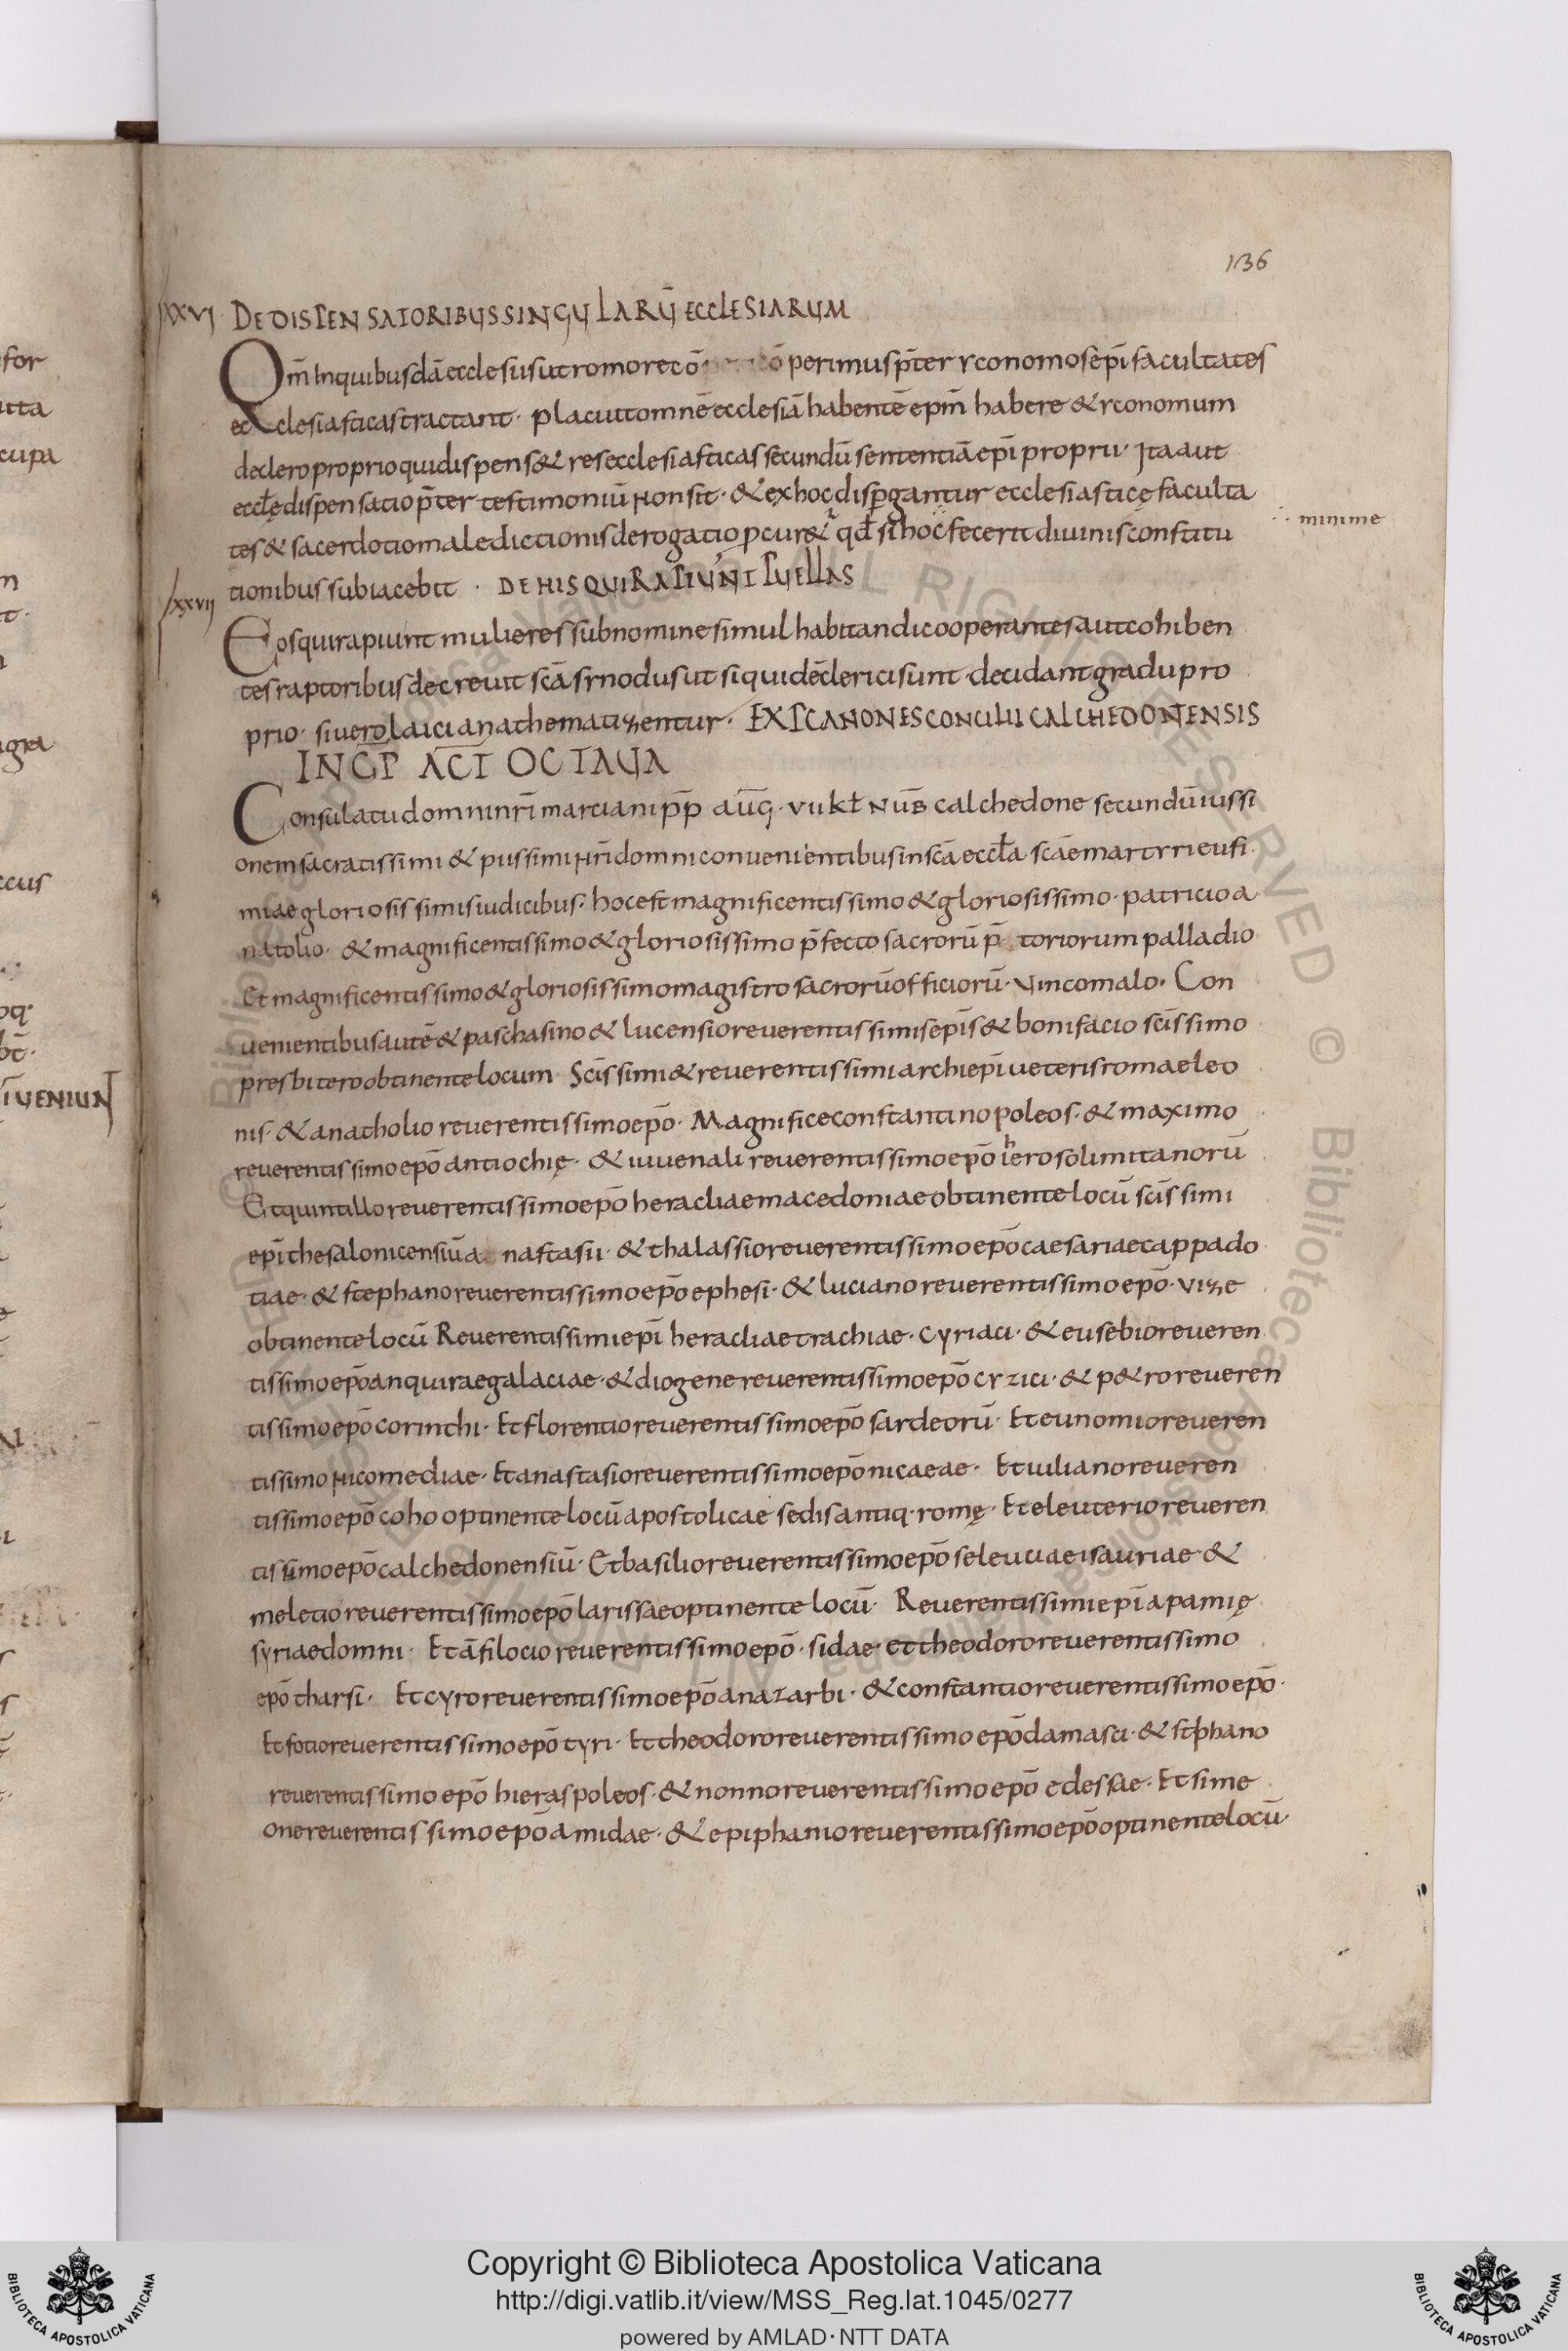 136
XXVI DE DISPENSATORIBUS SINGULARŪ ECCLESIARUM
Qm̄ In quibusdā ecclesiis ut romore cō perimus p̄ter yconomos ep̄i facultates
ecclesiasticas tractant · placuit omnē ecclesiā habentē ep̄m habere & yconomum
de clero proprio qui dispens& res ecclesiasticas secundū sententiā ep̄i proprii · Ita aut
ecclę dispensatio p̄ter testimoniū non sit · & ex hoc disp̲gantur ecclesiasticę faculta
minime
tes & sacerdotio maledictionis derogatio p̲cur& qđ si hoc fecerit diuinis constitu
tionibus subiacebit · DE HIS QUI RAPIUNT PUELLAS
XXVII
Eos qui rapiunt mulieres sub nomine simul habitandi cooperantes aut cohiben
tes raptoribus decreuit scā synodus ut si quidē clerici sunt decidant gradu pro
prio · si uero laici anathematizentur · EXP CANONES CONCILII CALCHEDONENSIS
INCP ACT OCTAUA
Consulatu domni nr̄i marciani pp̄ aug̅ · VII kł NUB̄ calchedone secundū iussi
onem sacratissimi & piissimi nr̄i domni conuenientibus in scā eccła scāe martyri eufi
miae gloriosissimis iudicibus · hoc est magnificentissimo & gloriosissimo · patricio a
natolio · & magnificentissimo & gloriosissimo p̄fecto sacrorū p̄ toriorum palladio
Et magnificentissimo & gloriosissimo magistro sacrorū officiorū · Vincomalo · Con
uenientibus autē & paschasino & lucensio reuerentissimis ep̄is & bonifacio sc̄issimo
presbitero obtinente locum Sc̄issimi & reuerentissimi archiep̄i ueteris romae leo
nis · & anatholio reuerentissimo ep̄o · Magnifice constantinopoleos · & maximo
reuerentissimo ep̄o antiochię · & iuuenali reuerentissimo ep̄o iherosolimitanorū
Et quintillo reuerentissimo ep̄o heracliae macedoniae obtinente locū sc̄issimi
ep̄i thesalonicensiū a nastasii · & thalassio reuerentissimo ep̄o caesariae cappado
tiae · & stephano reuerentissimo ep̄o ephesi · & luciano reuerentissimo ep̄o · vize
obtinente locū Reuerentissimi ep̄i heracliae trachiae · Cyriaci · & eusebio reueren
tissimo ep̄o anquirae galaciae · & diogene reuerentissimo ep̄o cyzici · & p&ro reueren
tissimo ep̄o corinthi · Et florentio reuerentissimo ep̄o sardeorū · Et eunomio reueren
tissimo nicomediae · Et anastasio reuerentissimo ep̄o nicaeae · Et iuliano reueren
tissimo ep̄o coho optinente locū apostolicae sedis antiq · romę · Et eleuterio reueren
tissimo ep̄o calchedonensiū · Et basilio reuerentissimo ep̄o seleuciae isauriae · &
meletio reuerentissimo ep̄o larissae optinente locū · Reuerentissimi ep̄i apamię
syriae domni · Et āfilocio reuerentissimo ep̄o · sidae · et theodoro reuerentissimo
ep̄o tharsi · Et cyro reuerentissimo ep̄o anazarbi · & constantio reuerentissimo ep̄o ·
Et fotio reuerentissimo ep̄o tyri · Et theodoro reuerentissimo ep̄o damasci · & stephano
reuerentissimo ep̄o hieraspoleos · & nonno reuerentissimo ep̄o edessae · Et sime
one reuerentissimo ep̄o amidae · & epiphanio reuerentissimo ep̄o optinente locū ·
Copyright © Biblioteca Apostolica Vaticana
http://digi.vatlib.it/view/MSS_Reg.lat.1045/0277
powered by AMLAD · NTT DATA